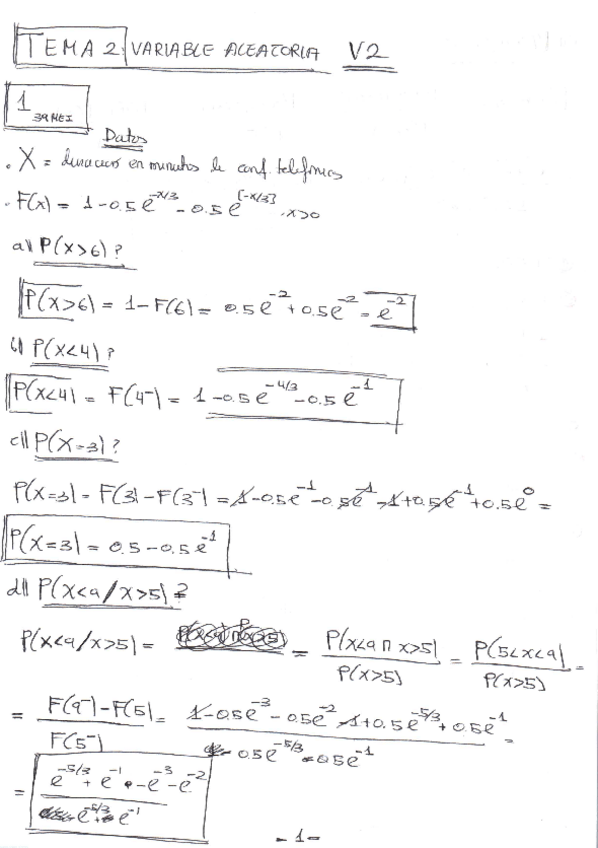 TEMA 2 VARIABLE ALEATORIA V2
1
39 MEI
Datos
. X = duracion en minutos de conf. telefónica
. F(x) = 1-0.5 e^{-x/3} - 0.5 e^{[-x/3]} . x>0
a\\ P(x>6)?
P(x>6) = 1-F(6) = 0.5e^{-2} + 0.5e^{-2} = e^{-2}
b\\ P(x<4)?
P(x<4) = F(4^-) = 1-0.5 e^{-4/3} - 0.5 e^{-1}
c\\ P(x=3)?
P(x=3) = F(3)-F(3^-) = 1-0.5e^{-1}-0.5e^{-1}-1+0.5e^{-1}+0.5e^{0} =
P(x=3) = 0.5-0.5 e^{-1}
d\\ P(x<9/x>5)?
P(x<9/x>5) = = P(x<9 ∩ x>5) / P(x>5) = P(5<x<9) / P(x>5) =
= F(9^-)-F(5) / F(5^-) = 1-0.5e^{-3} - 0.5e^{-2} - 1+0.5e^{-5/3} + 0.5e^{-1} / 0.5e^{-5/3} 0.5e^{-1} =
= e^{-5/3} + e^{-1} - e^{-3} - e^{-2} / e^{-5/3} + e^{-1}
- 1 -